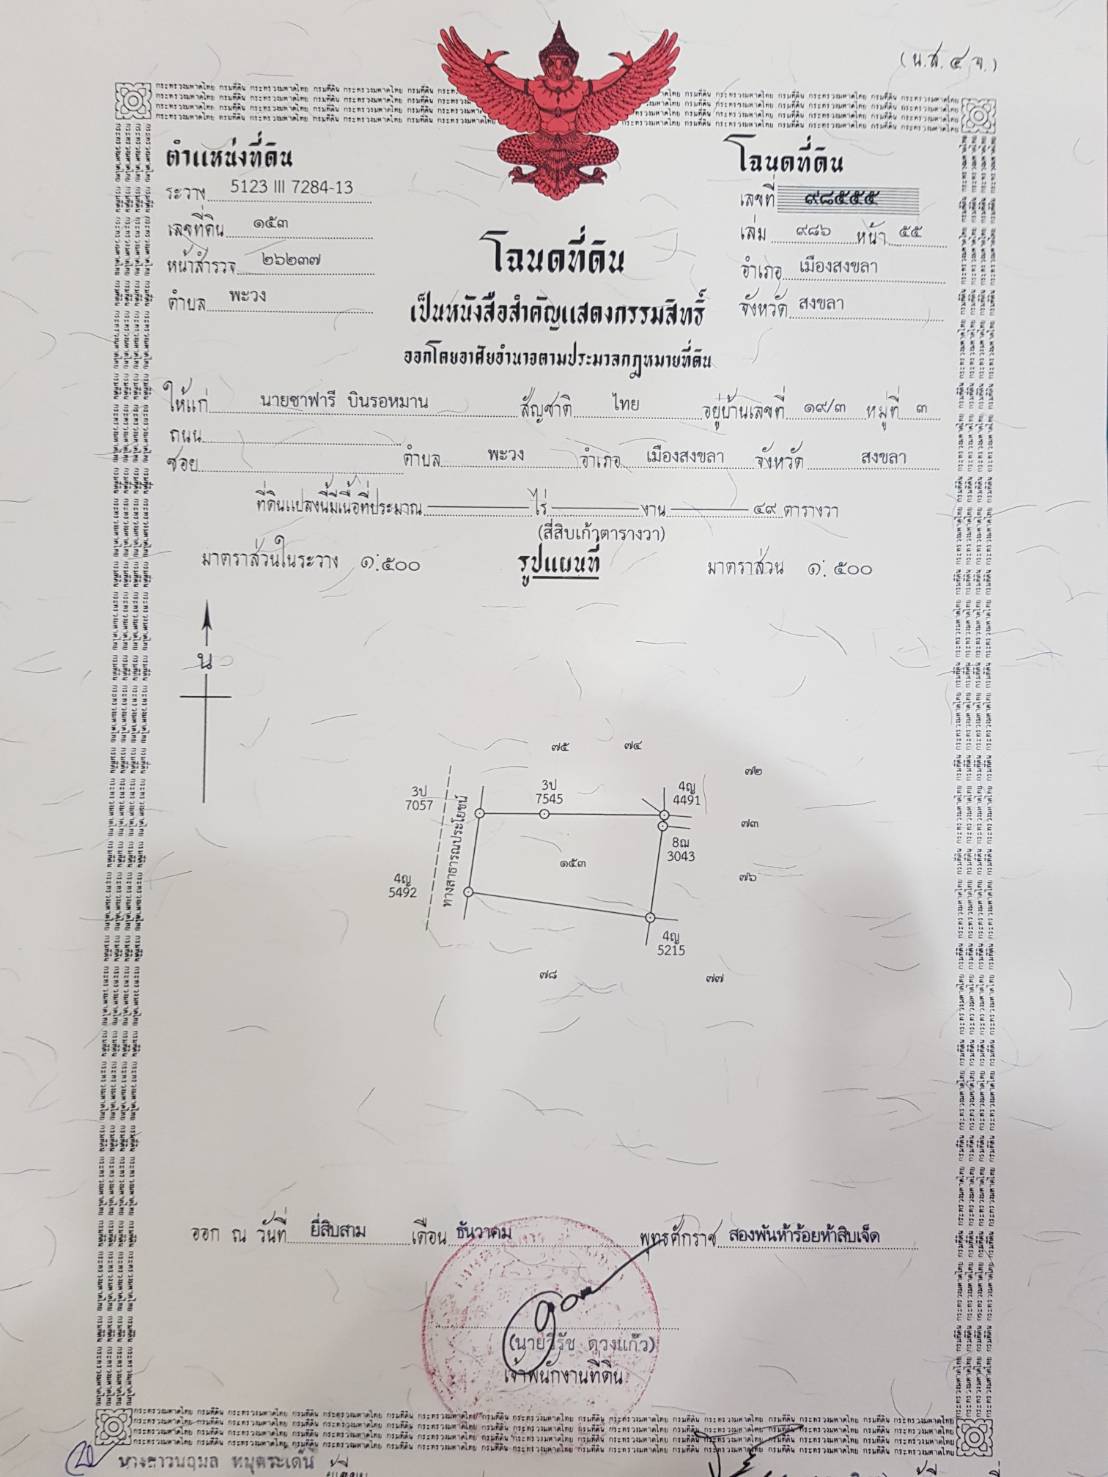 (น.ส.๔ จ.)
ตำแหน่งที่ดิน
ระวาง 5123 III 7284-13
เลขที่ดิน ๑๕๓
หน้าสำรวจ ๒๖๒๓๗
ตำบล พะวง
โฉนดที่ดิน
เลขที่ ๙๘๕๕๕
เล่ม ๙๘๖ หน้า ๕๕
อำเภอ เมืองสงขลา
จังหวัด สงขลา
โฉนดที่ดิน
เป็นหนังสือสำคัญแสดงกรรมสิทธิ์
ออกโดยอาศัยอำนาจตามประมวลกฎหมายที่ดิน
ให้แก่ นายซาฟารี บินรอหมาน สัญชาติ ไทย อยู่บ้านเลขที่ ๑๙/๓ หมู่ที่ ๓
ถนน
ซอย ตำบล พะวง อำเภอ เมืองสงขลา จังหวัด สงขลา
ที่ดินแปลงนี้มีเนื้อที่ประมาณ ไร่ งาน ๔๙ ตารางวา
(สี่สิบเก้าตารางวา)
มาตราส่วนในระวาง ๑:๕๐๐ รูปแผนที่ มาตราส่วน ๑:๕๐๐
น
๗๕ ๗๔
๗๒
3ป 7057
3ป 7545
4ญ 4491
ทางสาธารณประโยชน์
๗๓
8ฌ 3043
๑๕๓
๗๖
4ญ 5492
4ญ 5215
๗๘ ๗๗
ออก ณ วันที่ ยี่สิบสาม เดือน ธันวาคม พุทธศักราช สองพันห้าร้อยห้าสิบเจ็ด
(นายวิรัช ดวงแก้ว)
เจ้าพนักงานที่ดิน